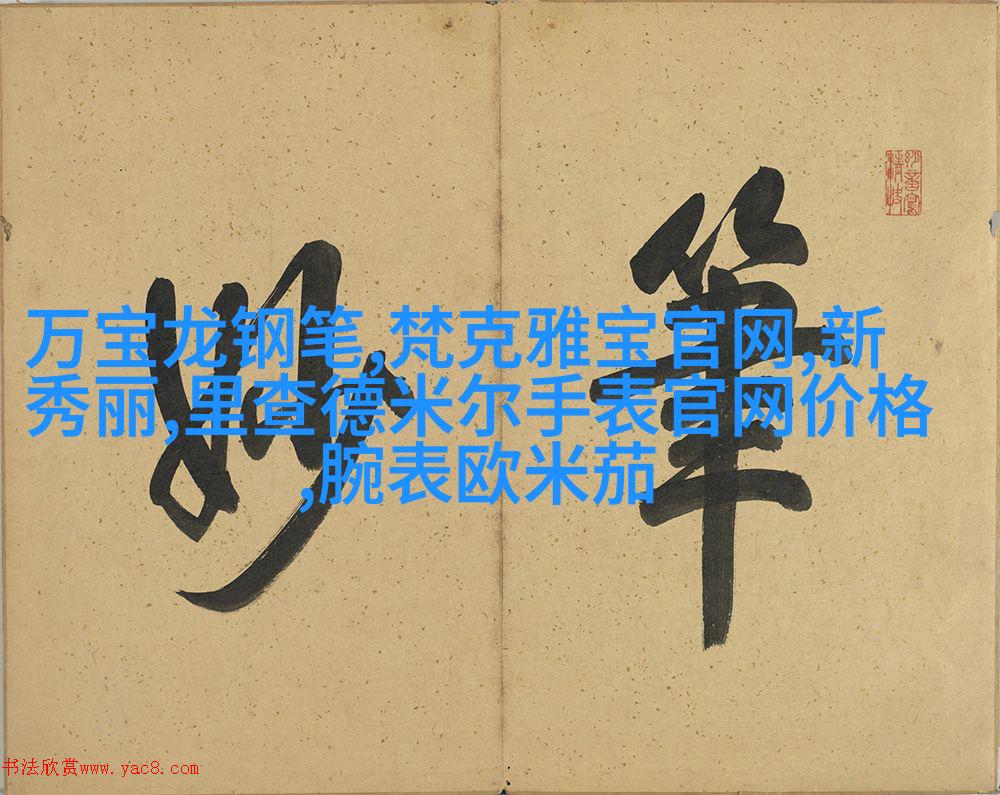 筆
妙
万宝龙钢笔,梵克雅宝官网,新
秀丽,里查德米尔手表官网价格
,腕表欧米茄
书法欣赏www.yac8.com